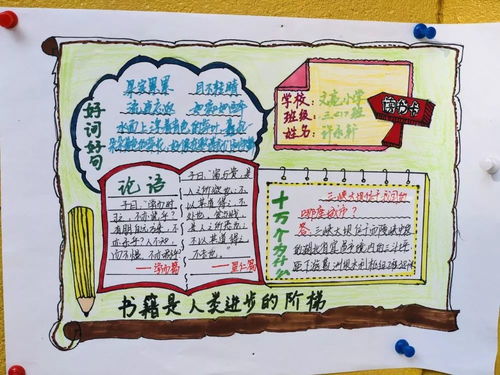 好词好句
果实累累 目不转睛
学校：文苑小学
班级：三.(7)班
姓名：许承轩
读书卡
论语
子曰：“学而时
习之，不亦说乎？
有朋自远方来，不
亦乐乎？人不知，
而不愠，不亦君子
——学而篇
子曰：“富与贵，是
人之所欲也，不
以其道得之，不
处也。贫与贱，
是人之所恶也，
不以其道得之，
不去也。”
——里仁篇
十万个为什么
三峡大坝位于我国的
哪座城市？
答：三峡大坝位于
的湖北省宜昌市境内的三斗坪，
书籍是人类进步的阶梯